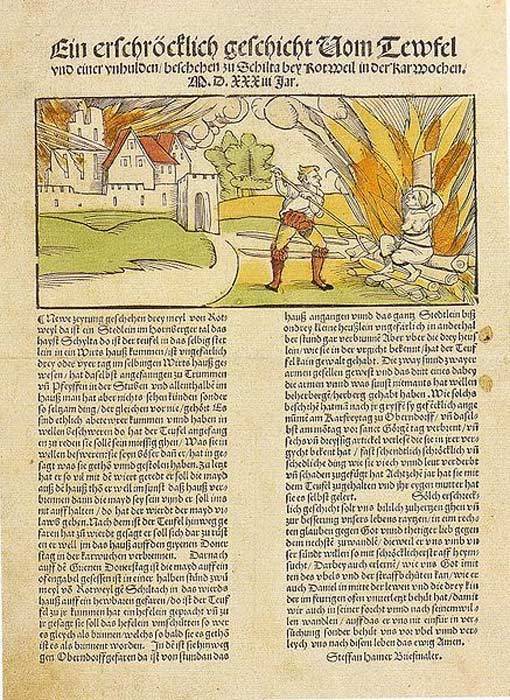 Ein erschröcklich geschicht Vom Tewfel
vnd einer vnhulden/ beschehen zu Schilta bey Rotweil in der Karwochen.
M. D. XXXiij Jar.
¶ Newe zeytung geschehen drey meyl von Rot
weyl da ist ein Stedlein im hornberger tal das
hayst Schylta do ist der teufel in das selbig sted
lein in ein Wirts hauß kummen/ ist vngefärlich
drey oder vyer tag im selbigen Wirts hauß ge
wesen/ hat daselbst angefangen zu Trummen
vñ Pfeyffen in der Stuben vnd allenthalb im
hauß man hat aber nichts sehen künden sonder
so seltzam ding/ der gleichen vor nie/ gehört Es
sind etlich abentewer kummen vnnd haben in
wellen beschweren do hat der Teufel angefang
en zu reden sie solle sein miessig ghen/ Was sie in
wellen beschweren: sie seyn böser dañ er/ hat in ge
sagt was sie gethō vnnd gestolen haben. Zu letzt
hat er so vil mit dē wiert geredt er soll die mayd
auß dē hauß thō er wöll im sunst daß hauß ver-
brennen dann die mayd sey sein vnnd er soll ims
nit auffhalten/ do hat der wierdt der mayd vr
lawb geben. Nach dem ist der Teufel hinweg ge
faren hat zū wierde gesagt er soll sich dar zu rüst
en er well im das hauß auff den gryenen Doner
stag in der karwuchen verbrennen. Darnach
auff dē Grienen Donerstag ist die mayd auff ein
ofengabel gesessen ist in einer halben stünd zwū
meyl vō Rotweyl gē Schiltach in das wierds
hauß auff ein hewbaren gefaren/ do ist der Teuf
fel zu jr kummen hat ein hefelein gepracht vñ zu
jr gesagt sie soll das hefelein vmschütten so wer
es gleych als brinnen/ welchs so bald sie es gethō
ist es als brinnent worden. In dē ist sie hinweg
gen Oberndorff gefaren da ist von stundan das
hauß angangen vnnd das gantz Stedtlein biß
on drey kleine heußlein vngefärlich in anderthal
ber stund gar verbrunnē Aber vber die drey heuß
lein/ wie sie in der vrgicht bekennt/ hat der Teuf
fel kain gewalt gehabt. Die zway sind zwayer
armen gesellen gewest vnd das drit eines dabey
die armen vnnd was sunst niemants hat wellen
beherbergē herberg gehabt haben. Wie solchs
beschehē hat mā nach jr gryffē sy gefēcklich ange
nūmē am Karfreytag zu Oberndorff/ vñ dasel-
bst am mōtag vor sanct Görgē tag verbrent/ vñ
sechs vñ dreyssig artickel verlesē die sie in jrer ver-
gycht bekent hat/ fast schendtlich schröcklich vñ
schedliche ding wie sie viech vnnd leut verderbt
vñ schaden zugefügt hat Achtzehē jar hat sie mit
dem Teufel zugehalten vnd jhr eygen mutter hat
sie es selbst gelert. Sölch erschreck-
lich geschicht solt vns billich zuhertzen ghen vñ
zur besserung vnsers lebens raytzen/ in ein recht
en glauben gegen Got vnnd thetiger lieb gegen
dem nechstē zuwandlē/ dieweil er vns vmb vn
ser sünd willen so mit schröcklicher straff heym
sucht/ Darbey auch erlernē/ wie vns Got imit
ten des vbels vnd der straff behüten kan/ wie er
auch Daniel in mitte der lewen vnd die drey kin
der im feurigen ofen vnuerletzt behüt hat/ damit
wir auch in seiner forcht vnnd nach seinem wil-
len wandlen/ auff das er vns nit ein für in ver-
suchung sonder behüt vns vor vbel vnnd ver-
leych vns nach disem leben das ewig Amen.
Steffan Hamer Briefmaler.